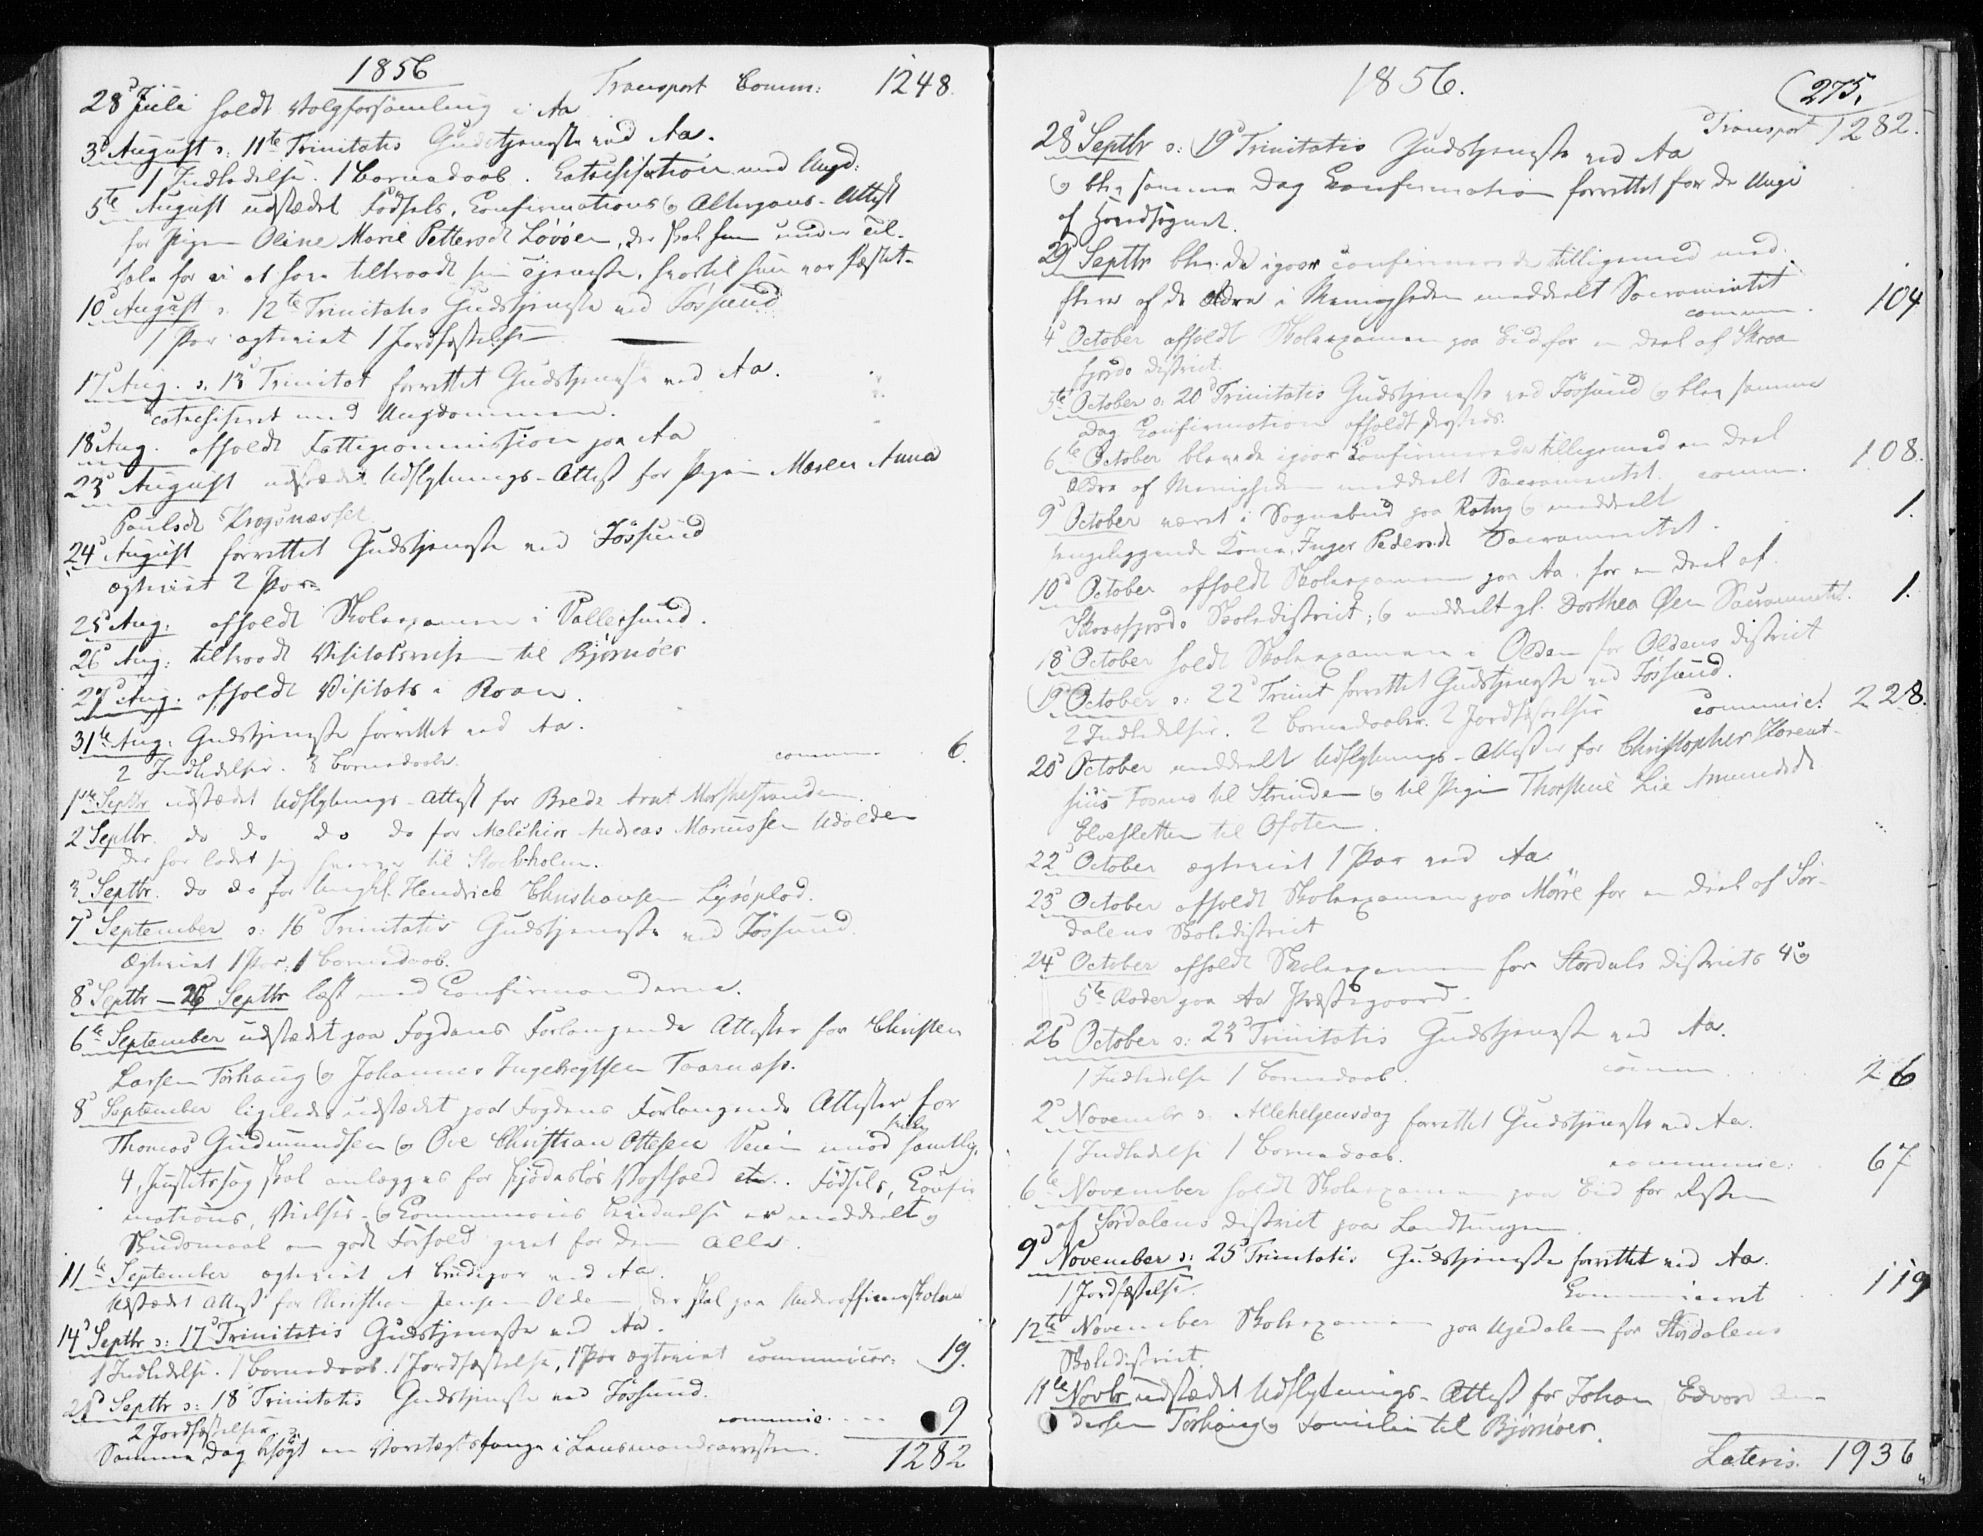 1856
Transport Comm: 1248.
28d Juli holdt Valgforsamling i Aa
3d August s: 11te Trinitatis Gudstjeneste ved Aa.
1 Indledelse. 1 Barnedaab. Catechisation med Ungd:
5te August udstædet Födsels, Confirmations og Altergans-Attest
for Pigen Oline Marie Pettersdt Lövöen, der skal under Til-
tale for ei at have tiltraadt sin Tjeneste, hvortil hun var fæstet.
10d August s. 12te Trinitatis Gudstjeneste ved Jössund
1 Par ægteviet 1 Jordfæstelse
17d Aug. s. 13d Trinitat forrettet Gudstjeneste ved Aa.
catechiseret med Ungdommen.
18d Aug. afholdt Fattigcommission paa Aa
23d August udstædet Udflytnings-Attest for Pigen Maren Anna
Paulsdt Krogsnæsset
24d August forrettet Gudstjeneste ved Jössund
ægteviet 2 Par
25d Aug. afholdt Skoleexamen i Vallersund.
26d Aug: tiltraadt Visitatsreise til Bjørnöer
27d Aug: afholdt Visitats i Roan.
31te Aug: Gudstjeneste forrettet ved Aa.
2 Indledelser. 3 Barnedaab. commun. 6.
1ste Septbr udstædet Udflytnings-Attest for Brede Arnt Morskestranden
2 Septbr. do do do do for Melchior Andreas Mariussen Udolden
der har ladet sig til Stockholm.
3d Septbr. do do for Ungkl. Hendrick Christiansen Lysöplad.
7d September s: 16d Trinitatis Gudstjeneste ved Jössund.
Ægteviet 1 Par; 1 Barnedaab.
8d Septbr — 26 Septbr læst med Confirmanderne.
6te September udstædet paa Fogdens Forlangende Attester for Christen
Larsen Tørhaug og Johannes Ingebrigtsen Taarnæs.
8d September ligeledes udstædet paa Fogdens Forlangende Attester for
Thomas Gudmundsen og Ove Christian Ottesen Veien mod samtlige
4, Justitssag skal anlægges for skjødesløs Vogthold etc. Födsels, Confir
mations, Vielses- og Communions er meddeelt og
Skudsmaal om godt Forhold givet for dem Alle.
11te September ægteviet et Brudepar ved Aa.
Udstædet Attest for Christian Jensen Olden, der skal paa Underofficeerskolen
14d Septbr s: 17d Trinitatis Gudstjeneste ved Aa.
1 Indledelse. 1 Barnedaab. 1 Jordfæstelse, 1 Par ægteviet communicer: 19.
21d Septbr s: 18d Trinitatis Gudstjeneste ved Jössund.
2 Jordfæstelser communic. 9
Samme Dag besögt en Varetægtsfange i Lensmandsarresten. 1282
1856.
275.
Transport 1282.
28d Septbr s: 19d Trinitatis Gudstjeneste ved Aa
og blev samme Dag Confirmation forrettet for de Unge
af Hovedsognet.
29d Septbr blev de igaar confirmerede tilligemed med
flere af de Ældre i Menigheden meddeelt Sacramentet
commun. 104
4d October afholdt Skoleexamen paa Eid for en Deel af Skraa
fjords District.
5te October s: 20d Trinitatis Gudstjeneste ved Jössund og blev samme
Dag Confirmation afholdt
6te October bleve de igaar Confirmerede tilligemed en Deel
Ældre af Menigheden meddeelt Sacramentet. comm. 108.
9d October været i Sognebud paa Ratvg og meddeelt
sengeliggende Kone, Inger Pedersdt Sacramentet. 1.
10d October afholdt Skoleexamen paa Aa. for en Deel af
Skraafjords Skoledistrict; og meddeelt gl. Dorthea Øen Sacramentet. 1.
18d October holdt Skoleexamen i Olden for Oldens District
19d October s: 22d Trinit forrettet Gudstjeneste ved Jössund.
2 Indledelser. 2 Barnedaaber. 2 Jordfæstelser communic: 228.
20d October meddeelt Udflytnings-Attester for Christopher Florent-
sius Fosnes til Strinden og til Pigen Thorstine Lie Amundsdt
Elvesletten til Ofoten.
22d October ægteviet 1 Par ved Aa.
23d October afholdt Skoleexamen paa Mörre for en Deel af Sör-
dalens Skoledistrict
24d October afholdt Skoleexamen for Stordals Districts 4d og
5te Roder paa Aa Præstegaard.
26d October s: 23d Trinitatis Gudstjeneste ved Aa.
1 Indledelse 1 Barnedaab. comm. 26
2d Novembr s: Allehelgensdag forrettet Gudstjeneste ved Aa.
1 Indledelse 1 Barnedaab. communic: 67
6te November holdt Skoleexamen paa Eid for Resten
af Sördalens District paa Landtungen
9d November s: 25d Trinitatis Gudstjeneste forrettet ved Aa.
1 Jordfæstelse. Communiceret 119
12te November Skoleexamen paa Ugedalen for Stordalens
Skoledistrict.
11te Novbr udstædet Udflytnings-Attest for Johan Edvard
dersen Tørhaug og Familie til Bjørnöer.
Lateris. 1936